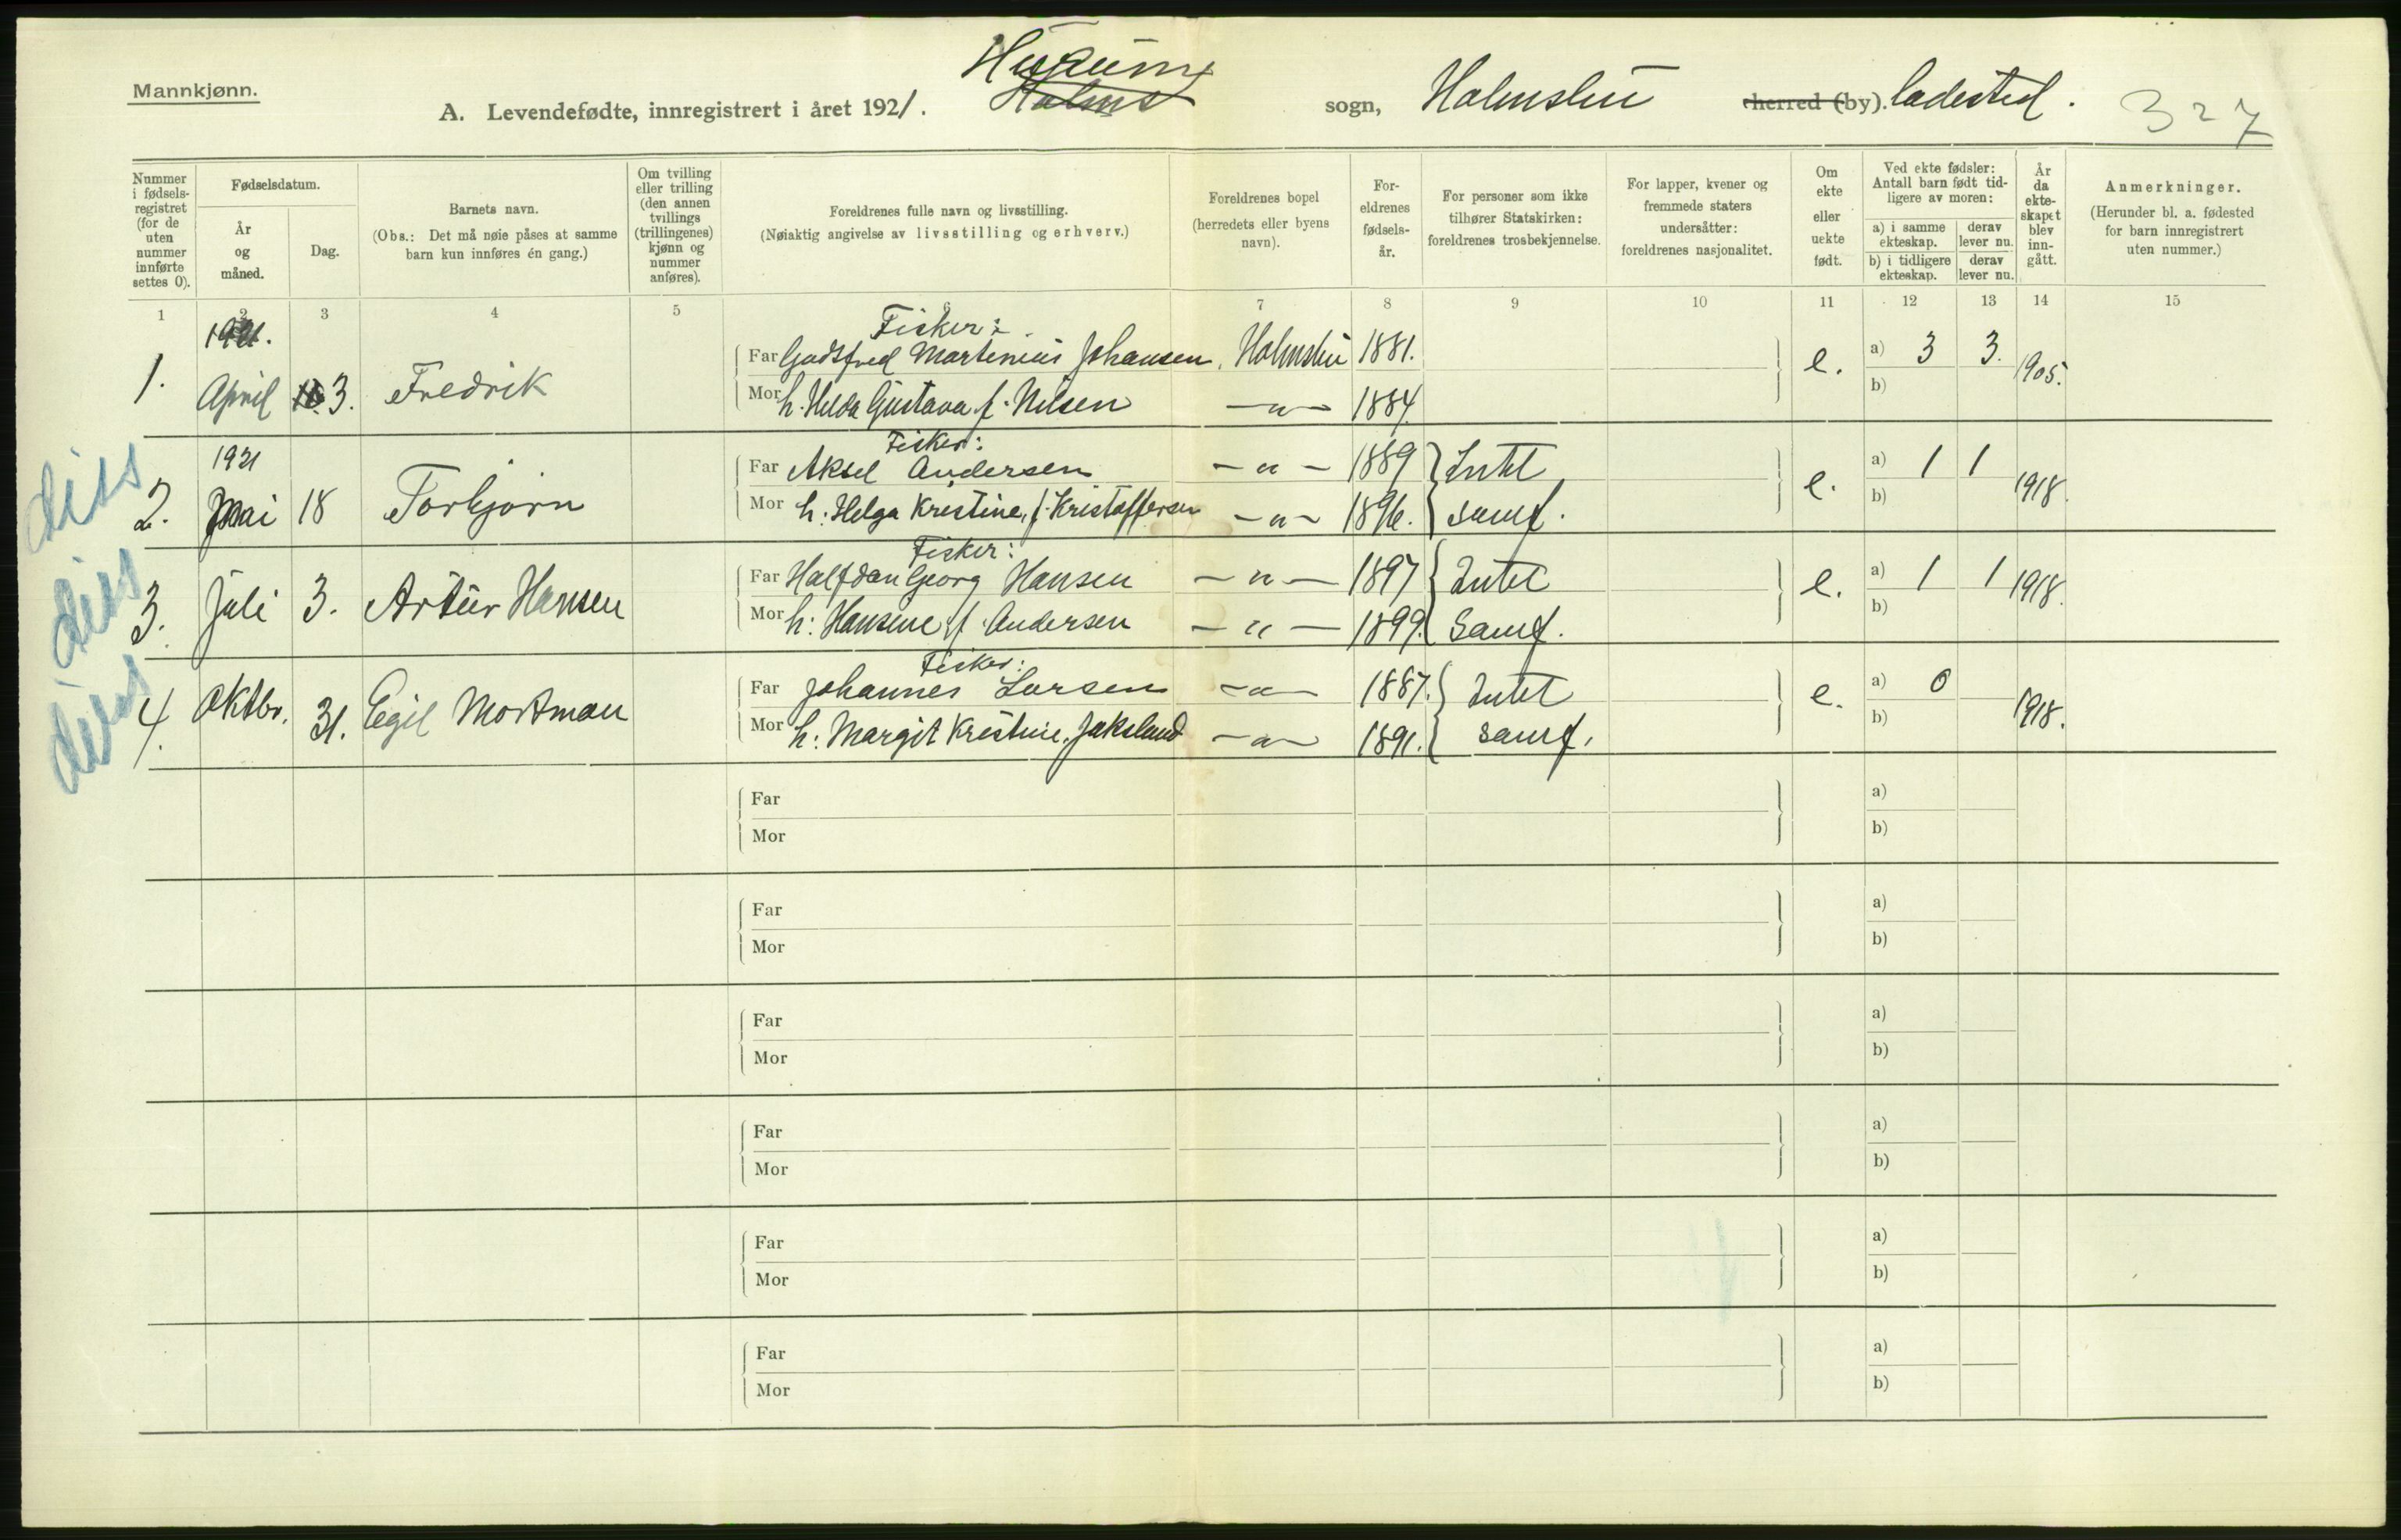 Mannkjønn.
A. Levendefødte, innregistrert i året 1921. Hurum Holms sogn, Holmsbu herred (by). ladested. 327
Nummer i fødsels-registret (for de uten nummer innførte settes 0).
Fødselsdatum.
År og måned.
Dag.
Barnets navn.
(Obs.: Det må nøie påses at samme barn kun innføres én gang.)
Om tvilling eller trilling (den annen tvillings (trillingenes) kjønn og nummer anføres).
Foreldrenes fulle navn og livsstilling.
(Nøiaktig angivelse av livsstilling og erhverv.)
Foreldrenes bopel (herredets eller byens navn).
For-eldrenes fødsels-år.
For personer som ikke tilhører Statskirken: foreldrenes trosbekjennelse.
For lapper, kvener og fremmede staters undersåtter: foreldrenes nasjonalitet.
Om ekte eller uekte født.
Ved ekte fødsler: Antall barn født tid-ligere av moren:
a) i samme ekteskap.
derav lever nu.
b) i tidligere ekteskap.
derav lever nu.
År da ekte-skapet blev inn-gått.
Anmerkninger.
(Herunder bl. a. fødested for barn innregistrert uten nummer.)
1 2 3 4 5 6 7 8 9 10 11 12 13 14 15
1921. Fisker:
1. April 3. Fredrik Far Godtfred Martinius Johansen, Holmsbu 1881. e. a) 3 3. 1905.
Mor h. Hilda Gustava f. Nilsen – " – 1884. b)
diss
1921 Fisker:
2. Mai 18 Torbjørn Far Aksel Andersen – " – 1889 Intet e. a) 1 1 1918.
Mor h: Helga Kristine, f. Kristoffersen – " – 1896. samf. b)
diss
Fisker:
3. Juli 3. Artur Hansen Far Halfdan Georg Hansen – " – 1897 Intet e. a) 1 1 1918.
Mor h: Hansine f. Andersen – " – 1899. Samf. b)
diss
Fisker:
4. Oktbr. 31. Egil Mortman Far Johannes Larsen – " – 1887. Intet e. a) 0 1918.
Mor h: Margit Kristine. Jaksland – " – 1891. samf. b)
Far a)
Mor b)
Far a)
Mor b)
Far a)
Mor b)
Far a)
Mor b)
Far a)
Mor b)
Far a)
Mor b)